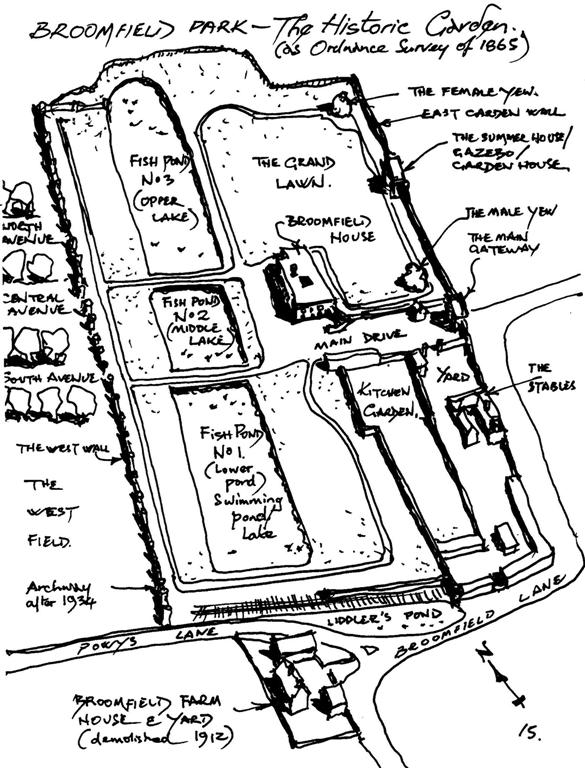 BROOMFIELD PARK - The Historic Garden.
(as Ordnance Survey of 1865)
THE FEMALE YEW.
EAST GARDEN WALL
THE SUMMER HOUSE/
GAZEBO/
GARDEN HOUSE
FISH POND
No 3
(UPPER
LAKE)
THE GRAND
LAWN.
BROOMFIELD
HOUSE
THE MALE YEW
THE MAIN
GATEWAY
NORTH
AVENUE
CENTRAL
AVENUE
SOUTH AVENUE
FISH POND
No 2
(MIDDLE
LAKE)
MAIN DRIVE
KITCHEN
GARDEN.
YARD
THE
STABLES
FISH POND
No 1.
(Lower
pond)
Swimming
pond/
Lake
THE WEST WALL
THE
WEST
FIELD.
Archway
after 1934
POWYS LANE
LIDDLER'S POND
BROOMFIELD LANE
BROOMFIELD FARM
HOUSE & YARD
(demolished 1912)
N
15.